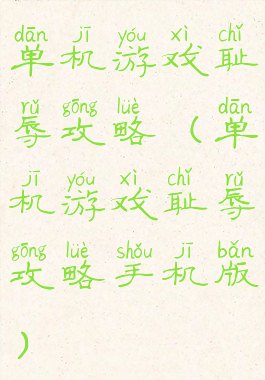 dān jī yóu xì chǐ
单机游戏耻
rǔ gōng lüè dān
辱攻略（单
jī yóu xì chǐ rǔ
机游戏耻辱
gōng lüè shǒu jī bǎn
攻略手机版
）